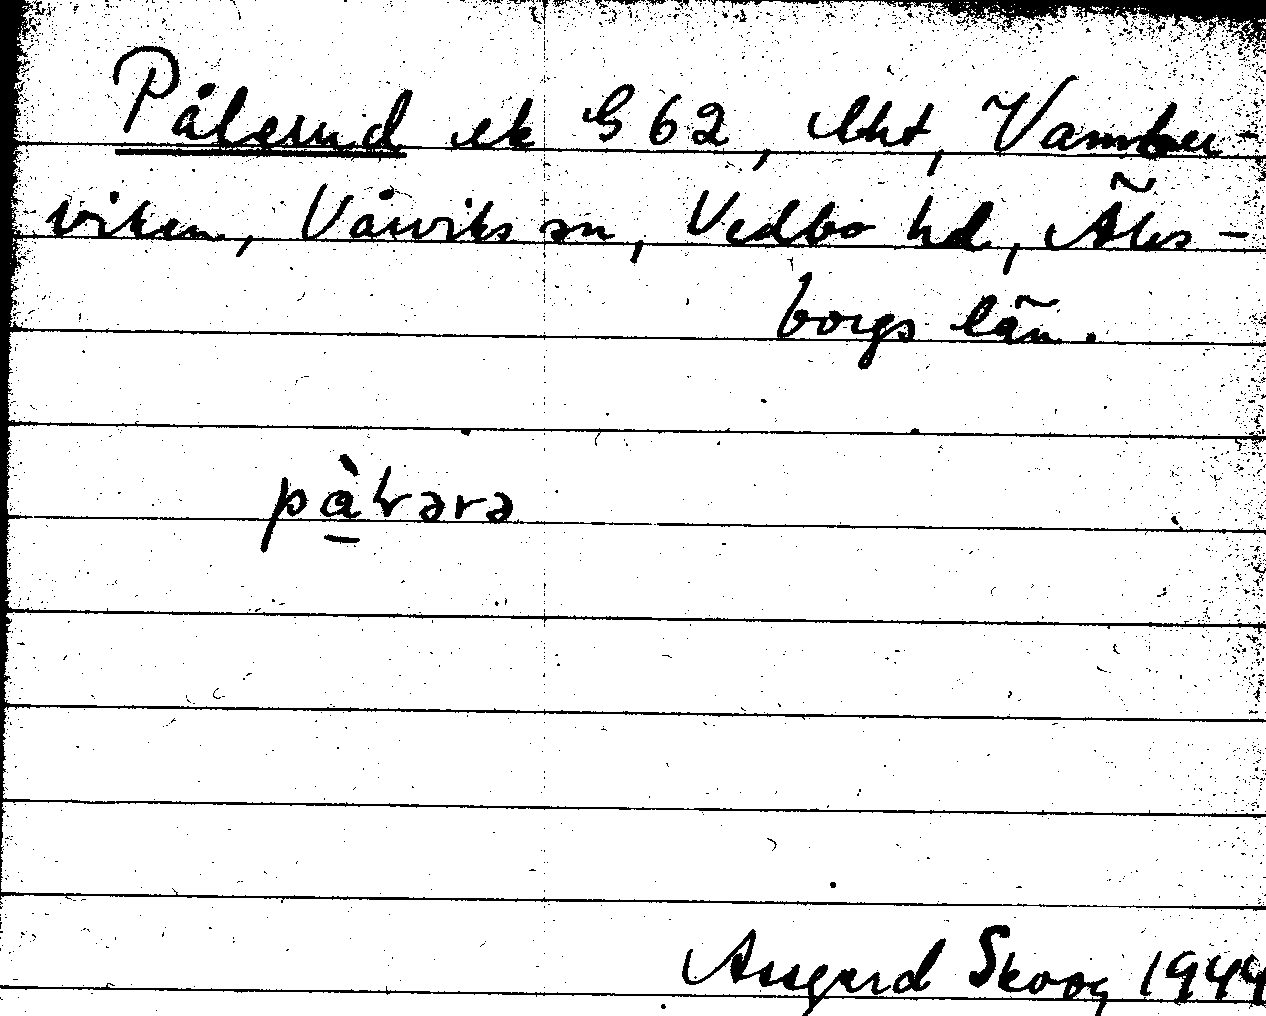 Pålerud ek G 62, lht, Vamber-
viken, Vårviks sn, Vedbo hd, Älvs-
borgs län.
pàlrərə
Asgard Skoog 1944